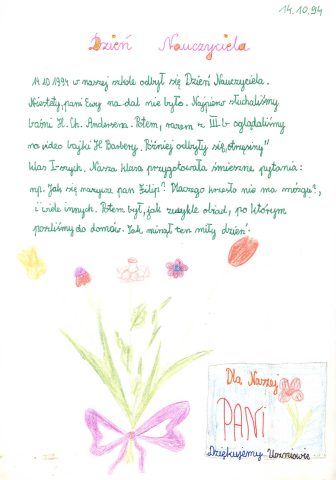 14.10.94
Dzień Nauczyciela
14.10.1994 w naszej szkole odbył się Dzień Nauczyciela.
Niestety, pani Ewy na dal nie było. Najpierw słuchaliśmy
baśni H. Ch. Andersena. Potem, razem z III b oglądaliśmy
na video bajki H. Barbery. Później odbyły się „otrzęsiny"
klas I-szych. Nasza klasa przygotowała śmieszne pytania:
np. Jak się nazywa pan Filip? Dlaczego krzesło nie ma mózgu?,
i wiele innych. Potem był, jak zwykle obiad, po którym
poszliśmy do domów. Tak minął ten miły dzień.
Dla Naszej
PANI
Dziękujemy Uczniowie